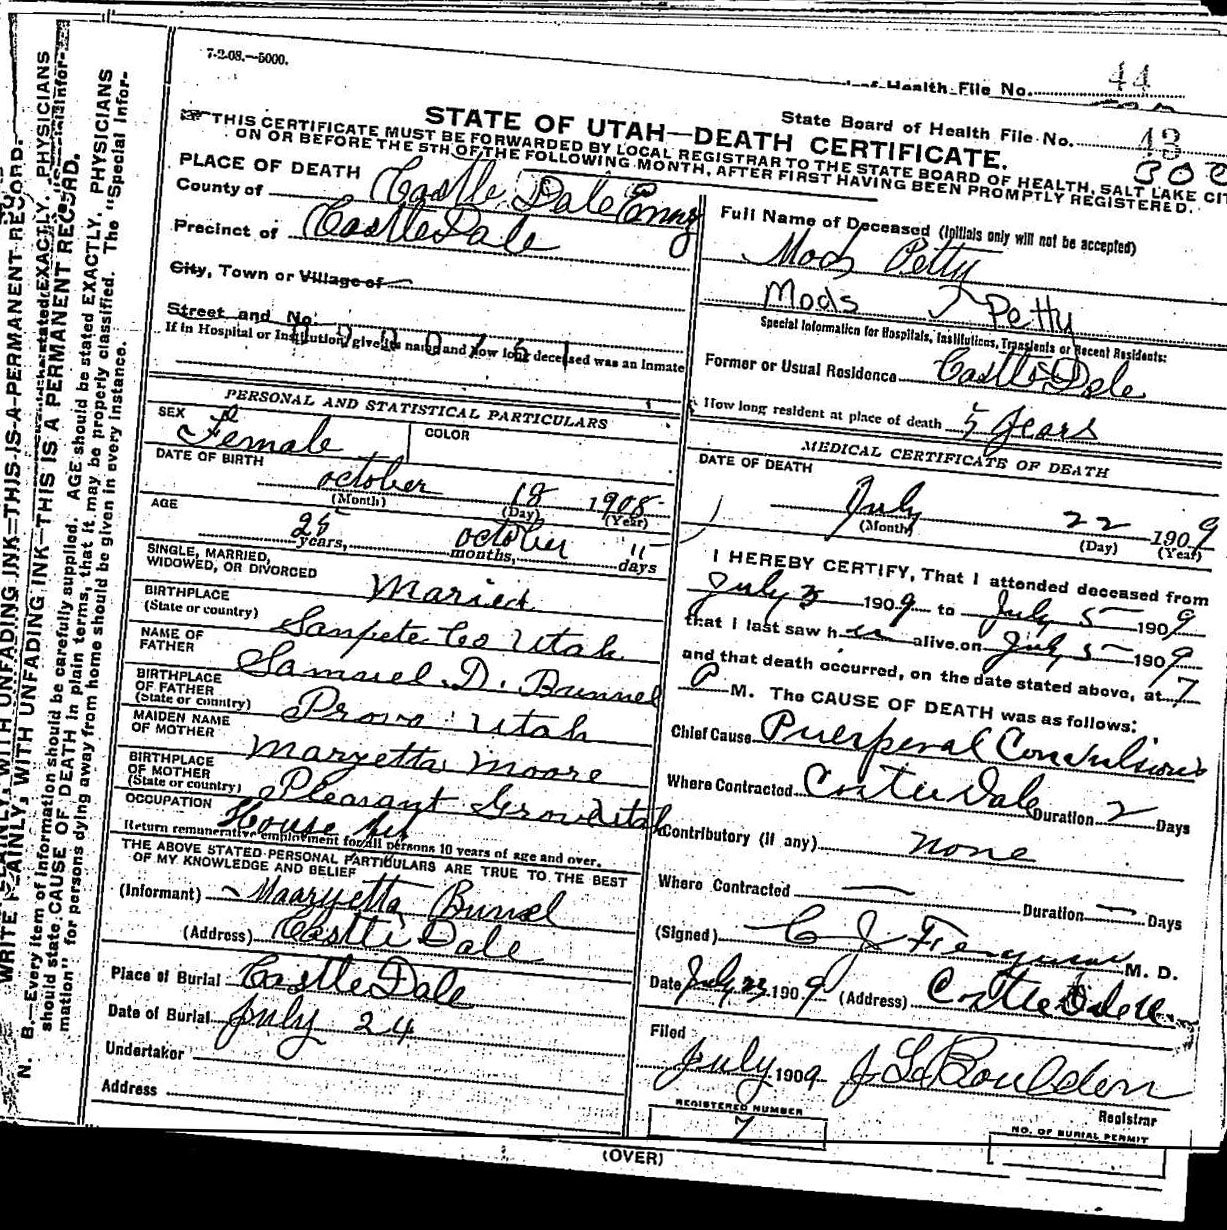 7-2-08.—5000.
of Health File No. 44
State Board of Health File No. 43
302
STATE OF UTAH—DEATH CERTIFICATE.
THIS CERTIFICATE MUST BE FORWARDED BY LOCAL REGISTRAR TO THE STATE BOARD OF HEALTH, SALT LAKE CIT
ON OR BEFORE THE 5TH OF THE FOLLOWING MONTH, AFTER FIRST HAVING BEEN PROMPTLY REGISTERED.
PLACE OF DEATH
County of Castle Dale Emry
Precinct of Castle Dale
City, Town or Village of
Street and No.
If in Hospital or Institution, give its name and how long deceased was an inmate
PERSONAL AND STATISTICAL PARTICULARS
SEX Female
COLOR
DATE OF BIRTH october 18 1908
(Month) (Day) (Year)
AGE 25 years, october months, 11 days
SINGLE, MARRIED,
WIDOWED, OR DIVORCED Maried
BIRTHPLACE
(State or country) Sanpete Co Utah
NAME OF
FATHER Samuel D. Bunnel
BIRTHPLACE
OF FATHER
(State or country) Provo Utah
MAIDEN NAME
OF MOTHER Maryetta Moore
BIRTHPLACE
OF MOTHER
(State or country) Pleasant Grove Utah
OCCUPATION House
Return remunerative employment for all persons 10 years of age and over.
THE ABOVE STATED PERSONAL PARTICULARS ARE TRUE TO THE BEST
OF MY KNOWLEDGE AND BELIEF
(Informant) Maaryetta Bunnel
(Address) Castle Dale
Place of Burial Castle Dale
Date of Burial July 24
Undertaker
Address
Full Name of Deceased (Initials only will not be accepted)
Mods Petty
Mods Petty
Special Information for Hospitals, Institutions, Transients or Recent Residents:
Former or Usual Residence Castle Dale
How long resident at place of death 5 years
MEDICAL CERTIFICATE OF DEATH
DATE OF DEATH
July 22 1909
(Month) (Day) (Year)
I HEREBY CERTIFY, That I attended deceased from
July 3 1909 to July 5 1909
that I last saw her alive on July 5 1909
and that death occurred, on the date stated above, at 7
P M. The CAUSE OF DEATH was as follows:
Chief Cause Puerperal Convulsions
Where Contracted Castle Dale Duration 2 Days
Contributory (if any) none
Where Contracted — Duration — Days
(Signed) C J M. D.
Date July 23 1909 (Address) Castle Dale
Filed
July 1909 J L Boulden
Registrar
REGISTERED NUMBER
7
NO. OF BURIAL PERMIT
(OVER)
WRITE PLAINLY, WITH UNFADING INK—THIS IS A PERMANENT RECORD.
N. B.—Every item of information should be carefully supplied. AGE should be stated EXACTLY. PHYSICIANS
should state CAUSE OF DEATH in plain terms, that it may be properly classified. The "Special Infor-
mation" for persons dying away from home should be given in every instance.